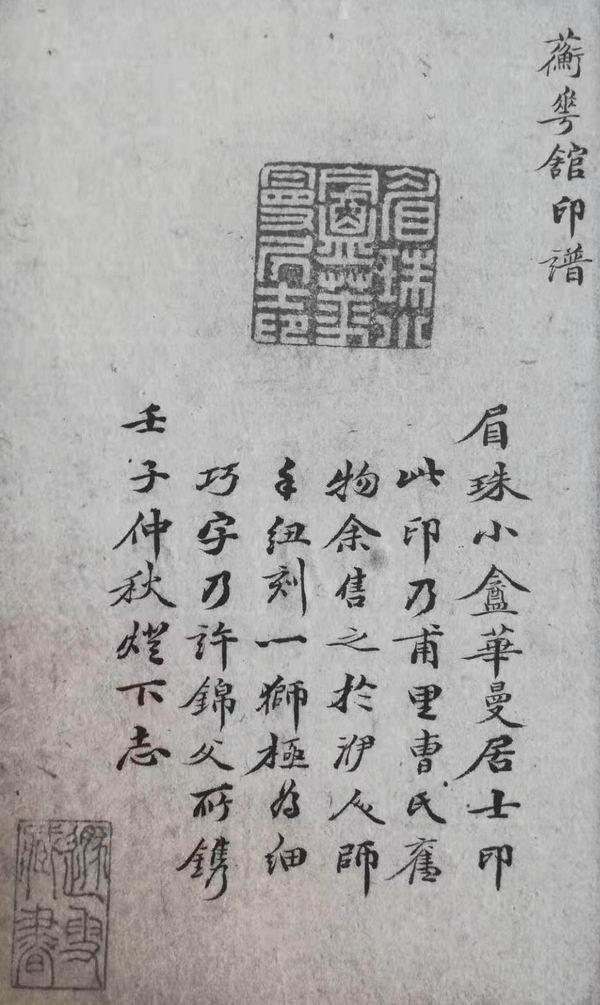 蘅華館印譜
眉珠小
盦華
曼居士印
眉珠小盦華曼居士印
此印乃甫里曹氏舊
物余售之於人師
手紐刻一獅極为细
巧字乃許錦父所鐫
壬子仲秋燈下志
遯叟
藏書